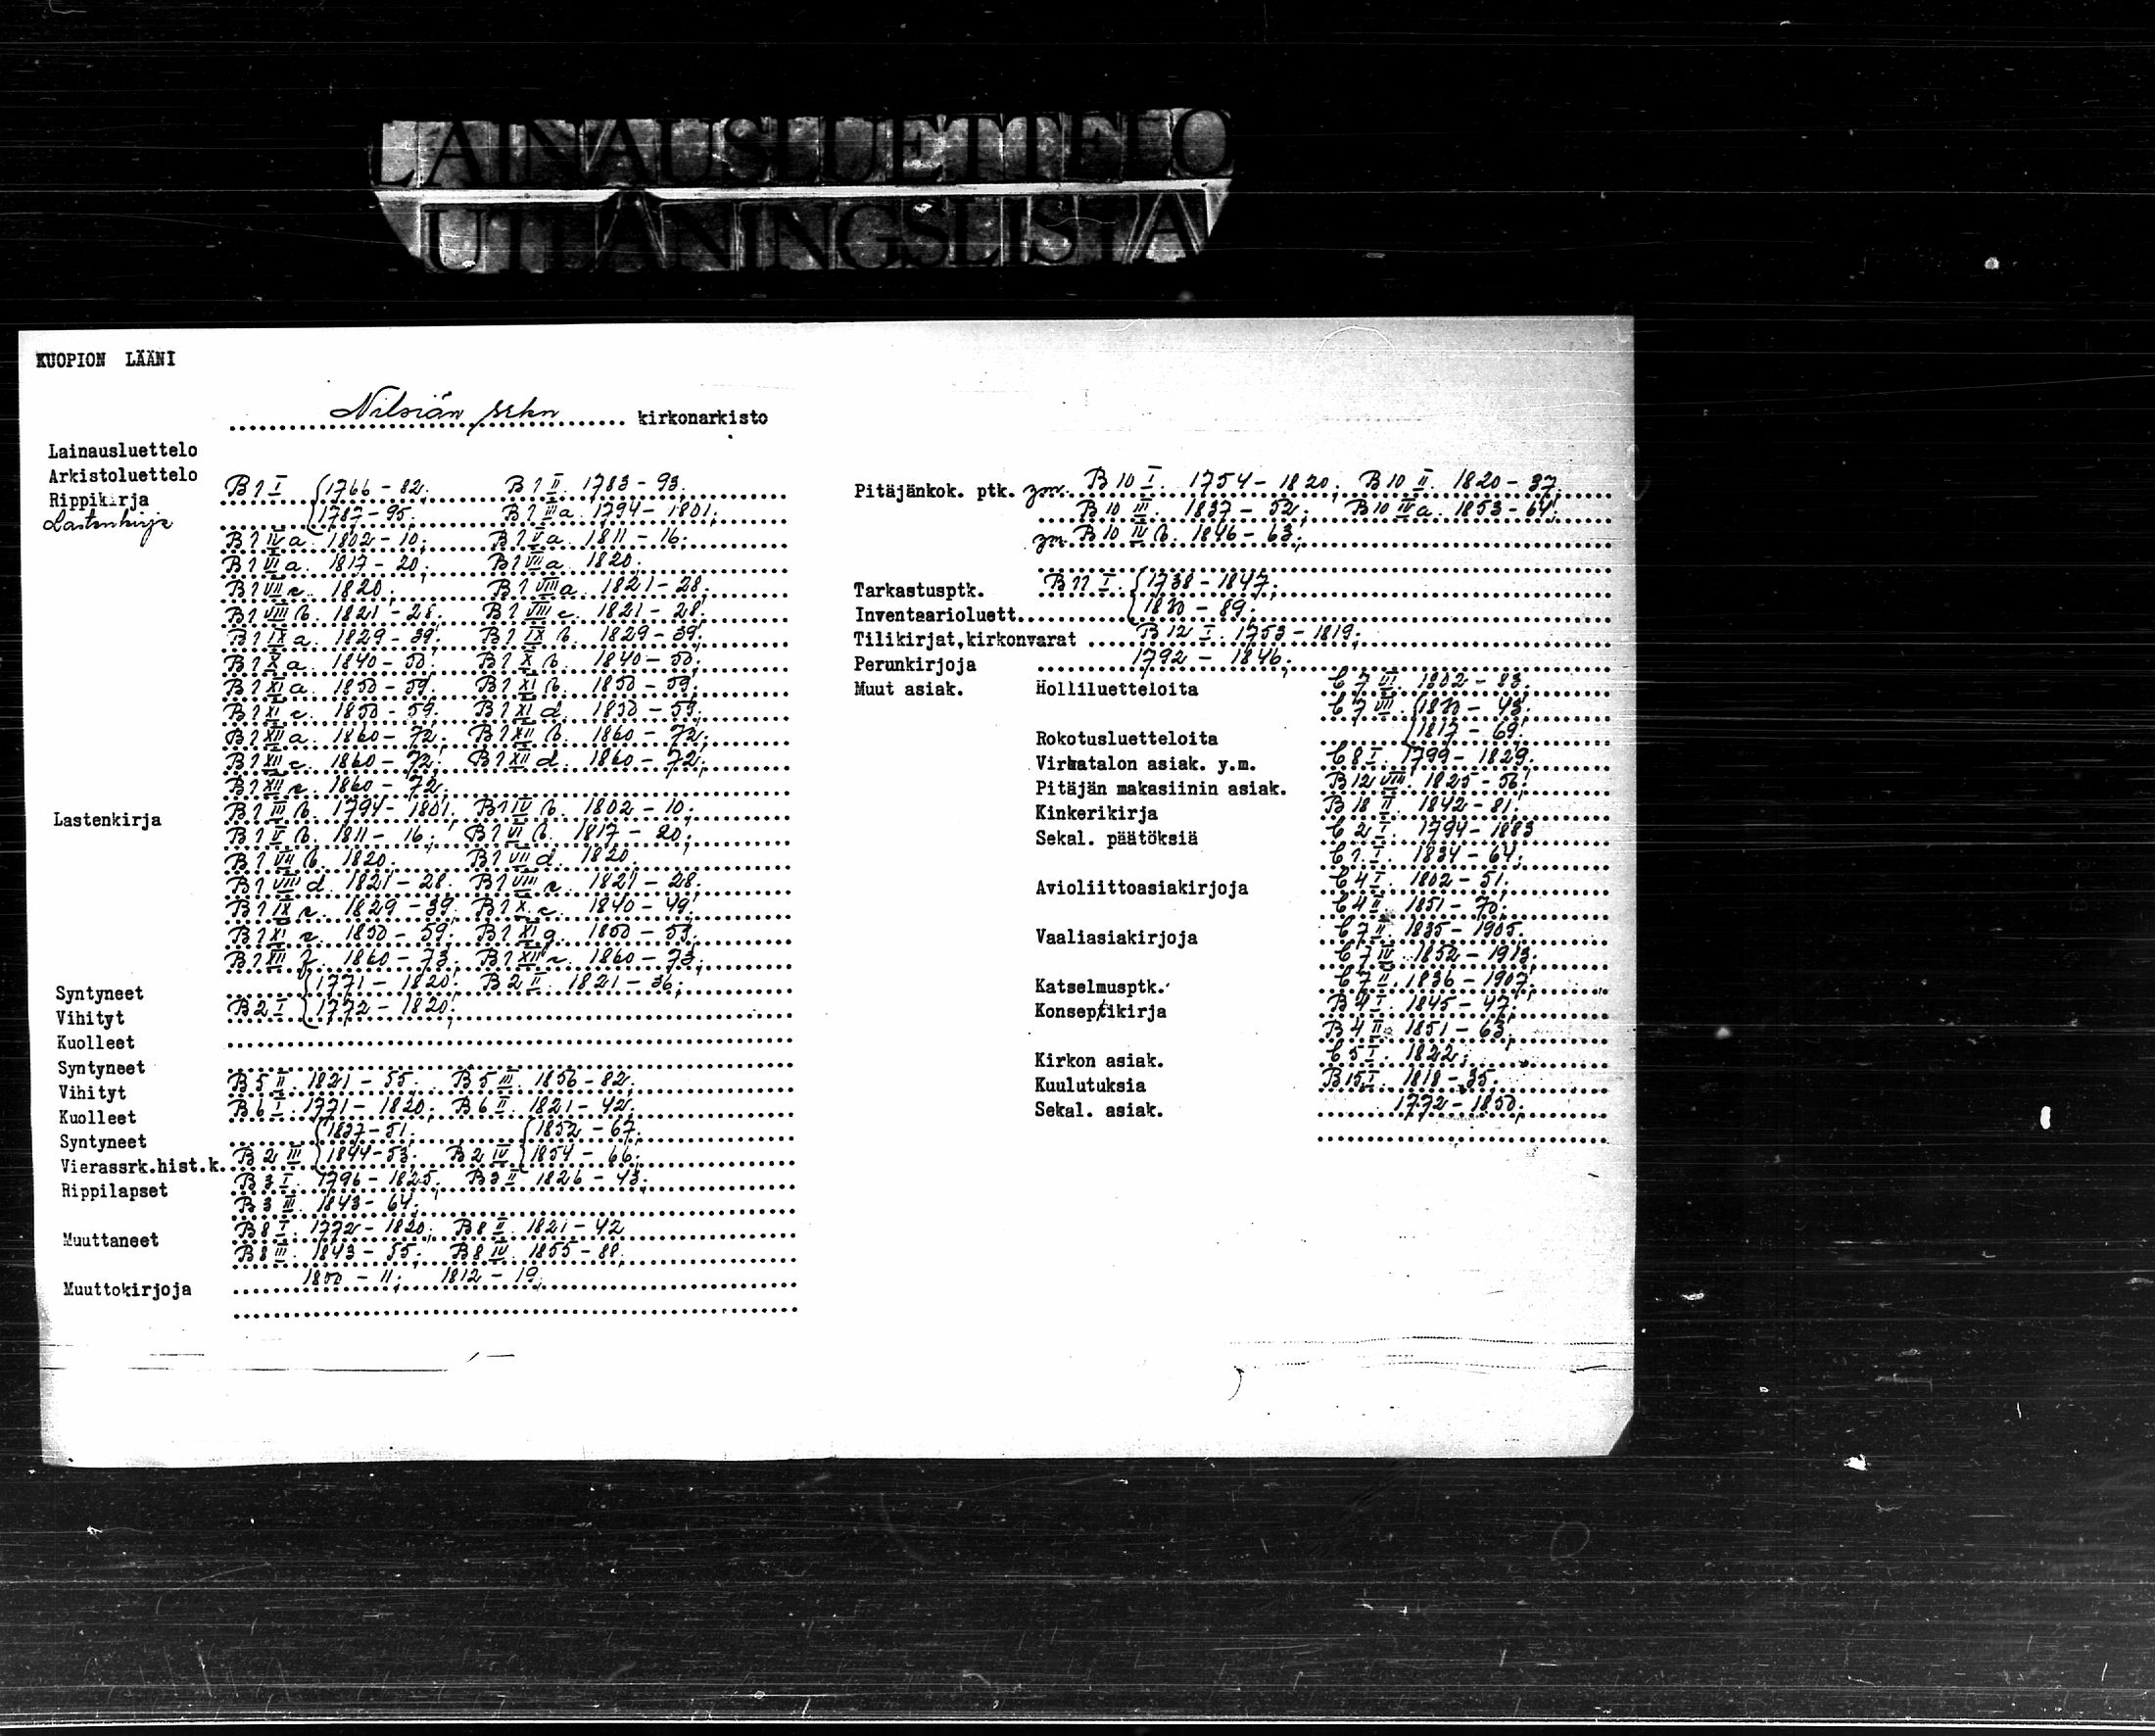 LAINAUSLUETTELO
UTLÅNINGSLISTA
KUOPION LÄÄNI
Nilsiän srkn kirkonarkisto
Lainausluettelo
Arkistoluettelo
Rippikirja B1 I 1766-82. B1 II. 1783-93.
Lastenkirja 1787-95. B1 III a. 1794-1801.
B1 IV a. 1802-10; B1 V a. 1811-16;
B1 VI a. 1817-20; B1 VII a. 1820;
B1 VII c. 1820; B1 VIII a. 1821-28;
B1 VIII b. 1821-28; B1 VIII c. 1821-28;
B1 IX a. 1829-39; B1 IX b. 1829-39;
B1 X a. 1840-50; B1 X b. 1840-50;
B1 XI a. 1850-59. B1 XI b. 1850-59;
B1 XI c. 1850-59. B1 XI d. 1850-59;
B1 XII a. 1860-72; B1 XII b. 1860-72;
B1 XII c. 1860-72; B1 XII d. 1860-72;
B1 XII e. 1860-72.
Lastenkirja B1 III b. 1794-1801. B1 IV b. 1802-10;
B1 V b. 1811-16; B1 VI b. 1817-20;
B1 VII b. 1820. B1 VII d. 1820.
B1 VIII d. 1821-28. B1 VIII e. 1821-28.
B1 IX c. 1829-39. B1 X c. 1840-49.
B1 XI e. 1850-59. B1 XI g. 1850-59.
B1 XII f. 1860-73. B1 XII 1860-73;
Syntyneet 1771-1820. B2 II. 1821-36;
Vihityt B2 I 1772-1820;
Kuolleet
Syntyneet
Vihityt B5 II. 1821-55. B5 III. 1856-82.
Kuolleet B6 I. 1771-1820; B6 II. 1821-42.
Syntyneet 1837-51. 1852-67;
Vierassrk.hist.k. B2 III 1844-53. B2 IV 1854-66;
Rippilapset B3 I. 1796-1825. B3 II 1826-43.
B3 III. 1843-64.
Muuttaneet B8 I. 1772-1820; B8 II. 1821-42
B8 III. 1843-55. B8 IV. 1855-88.
Muuttokirjoja 1800-11; 1812-19;
Pitäjänkok. ptk. ym. B10 I. 1754-1820; B10 II. 1820-37.
B10 III. 1837-52; B10 IV a. 1853-64.
ym. B10 IV b. 1846-63;
Tarkastusptk. B11 I. 1738-1847;
Inventaarioluett. -89.
Tilikirjat,kirkonvarat B12 I. 1753-1819;
Perunkirjoja 1792-1846;
Muut asiak. Holliluetteloita C7 VI. 1802-83.
C7 VII. -43.
Rokotusluetteloita 1817-69.
Virkatalon asiak. y.m. C8 I. 1799-1829.
Pitäjän makasiinin asiak. B12 VIII. 1825-56.
Kinkerikirja B18 II. 1842-81.
Sekal. päätöksiä C2 I. 1794-1883
C1 I. 1834-64.
Avioliittoasiakirjoja C4 I. 1802-51.
C4 II. 1851-70.
Vaaliasiakirjoja C7 II. 1835-1905.
C7 IV. 1852-1913.
Katselmusptk. C7 II. 1836-1907.
Konseptikirja B4 I. 1845-47.
B4 II. 1851-63.
Kirkon asiak. C5 I. 1822;
Kuulutuksia B15 I. 1818-35.
Sekal. asiak. 1772-1850;